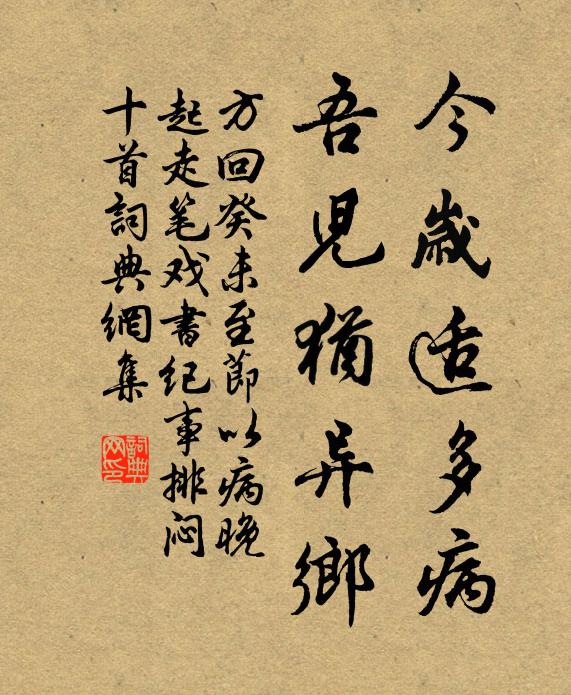 今歲适多病
吾兒猶异鄉
方回癸未至節以病晚
起走笔戏書纪事排闷
十首詞典網集
詞典
网印